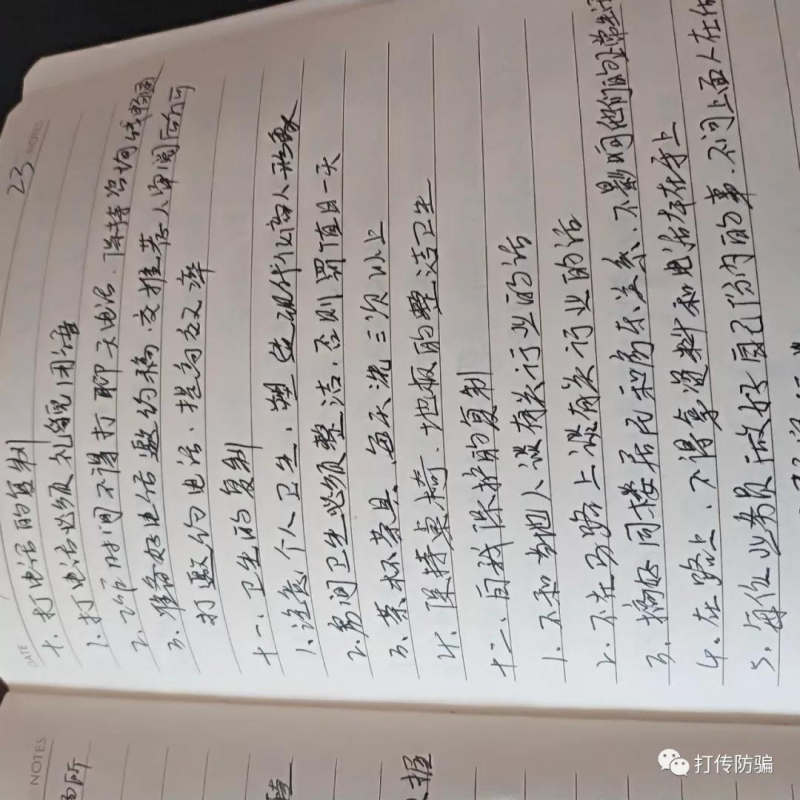 NOTES
23
DATE
十、打电话的复制
1、打电话必须礼貌用语
2、工作时间不得打聊天电话、保持咨询线畅通
3、准备好电话邀约稿交推荐人审阅后方可
打邀约电话，提高效率
十一、卫生的复制
1、注意个人卫生，塑造现代化商人形象
2、房间卫生必须整洁，否则罚值日一天
3、茶杯茶具、每天洗三次以上
4、保持桌椅、地板的整洁卫生
十二、自我保护的复制
1、不和当地人谈有关行业的话
2、不在马路上谈有关行业的话
3、搞好同楼居民和房东关系、不影响他们的正常生活
4、在路上、不得拿资料和电话本在手上
5、每位业务员做好自己份内的事、不问上面人在
NOTES
场所
握
打传防骗